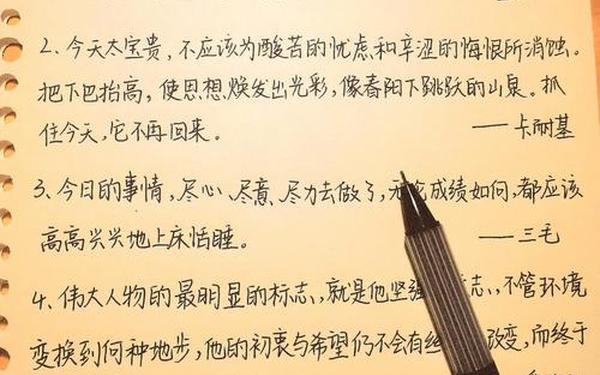 2、今天太宝贵，不应该为酸苦的忧虑和辛涩的悔恨所消蚀。
把下巴抬高，使思想焕发出光彩，像春阳下跳跃的山泉。抓
住今天，它不再回来。 ——卡耐基
3、今日的事情，尽心、尽意、尽力去做了，论成绩如何，都应该
高高兴兴地上床恬睡。 ——三毛
4、伟大人物的最明显的标志，就是他坚强志，不管环境
变换到何种地步，他的初衷与希望仍不会有丝改变，而终于